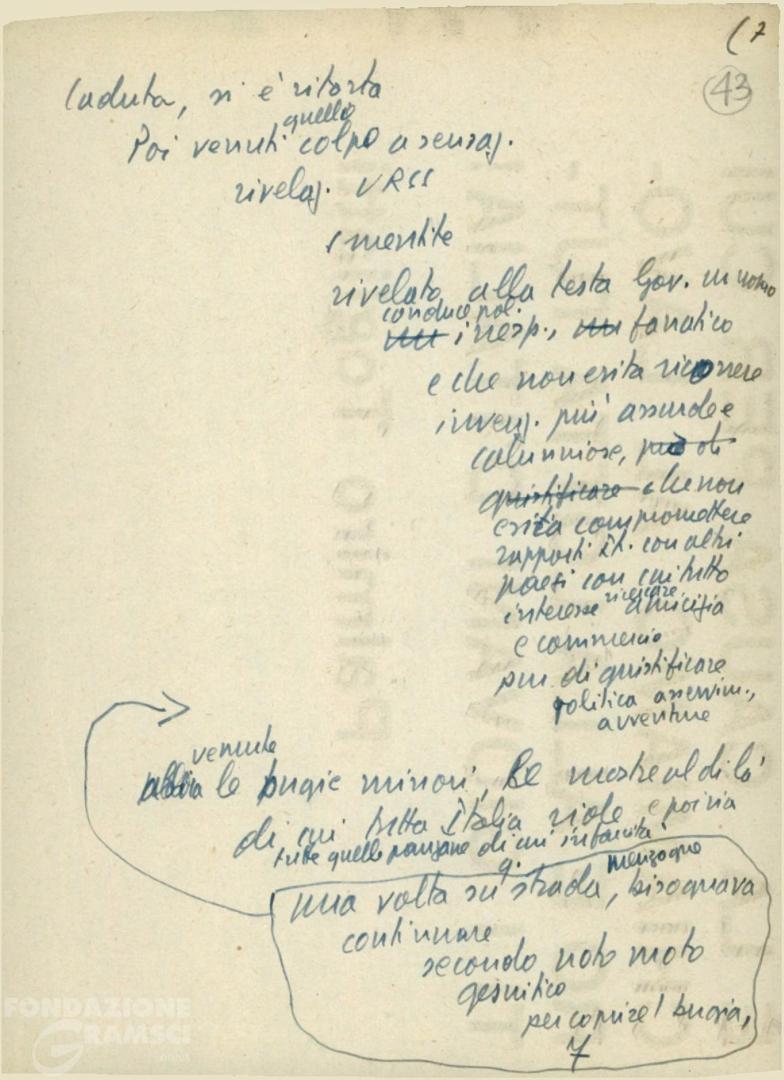 (7
43
Caduta, si è ritorta
Poi venuti quello colpo a sensaz.
rivelaz. URSS
smentite
rivelato alla testa Gov. un uomo
conduce pol.
un inesp., un fanatico
e che non esita ricorrere
invenz. più assurde e
calunniose, pur di
giustificare che non
esita compromettere
rapporti It. con altri
paesi con cui tutto
interesse ricercare amicizia
e commercio
pur di giustificare
politica asservim.,
avventure
venute
le bugie minori, le mostre al di là
di cui tutta Italia ride e poi via
tutte quelle panzane di cui infarcita
q. menzogne
una volta su strada, bisognava
continuare
secondo noto moto
gesuitico
per coprire 1 bugia,
7
FONDAZIONE
GRAMSCI